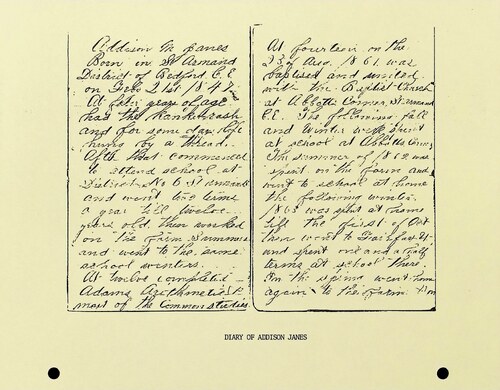 Addison M Janes
Born in St Armand
District of Bedford C.E
on Feb 21st 1847
At four years of age
had the Kankerrash
and for some days life
hung by a thread.
After that commenced
to attend school at
District No 6 St Armand
and went the time
a year till twelve
years old, then worked
on the farm Summers
and went to the same
school winters.
At twelve completed
Adams Arithmetic &
most of the Common studies
At fourteen on the
23d Aug. 1861 was
baptised and united
with the Baptist Church
at Abbotts Corner, St Armand
C.E. The following fall
and winter were spent
at school at Abbotts Corner
The summer of 1862 was
spent on the farm and
went to school at home
the following winter.
1863 was spent at home
till the first of Oct
then went to Fairfax Vt
and spent one and a half
terms at school there.
In the spring went home
again to the farm.
DIARY OF ADDISON JANES